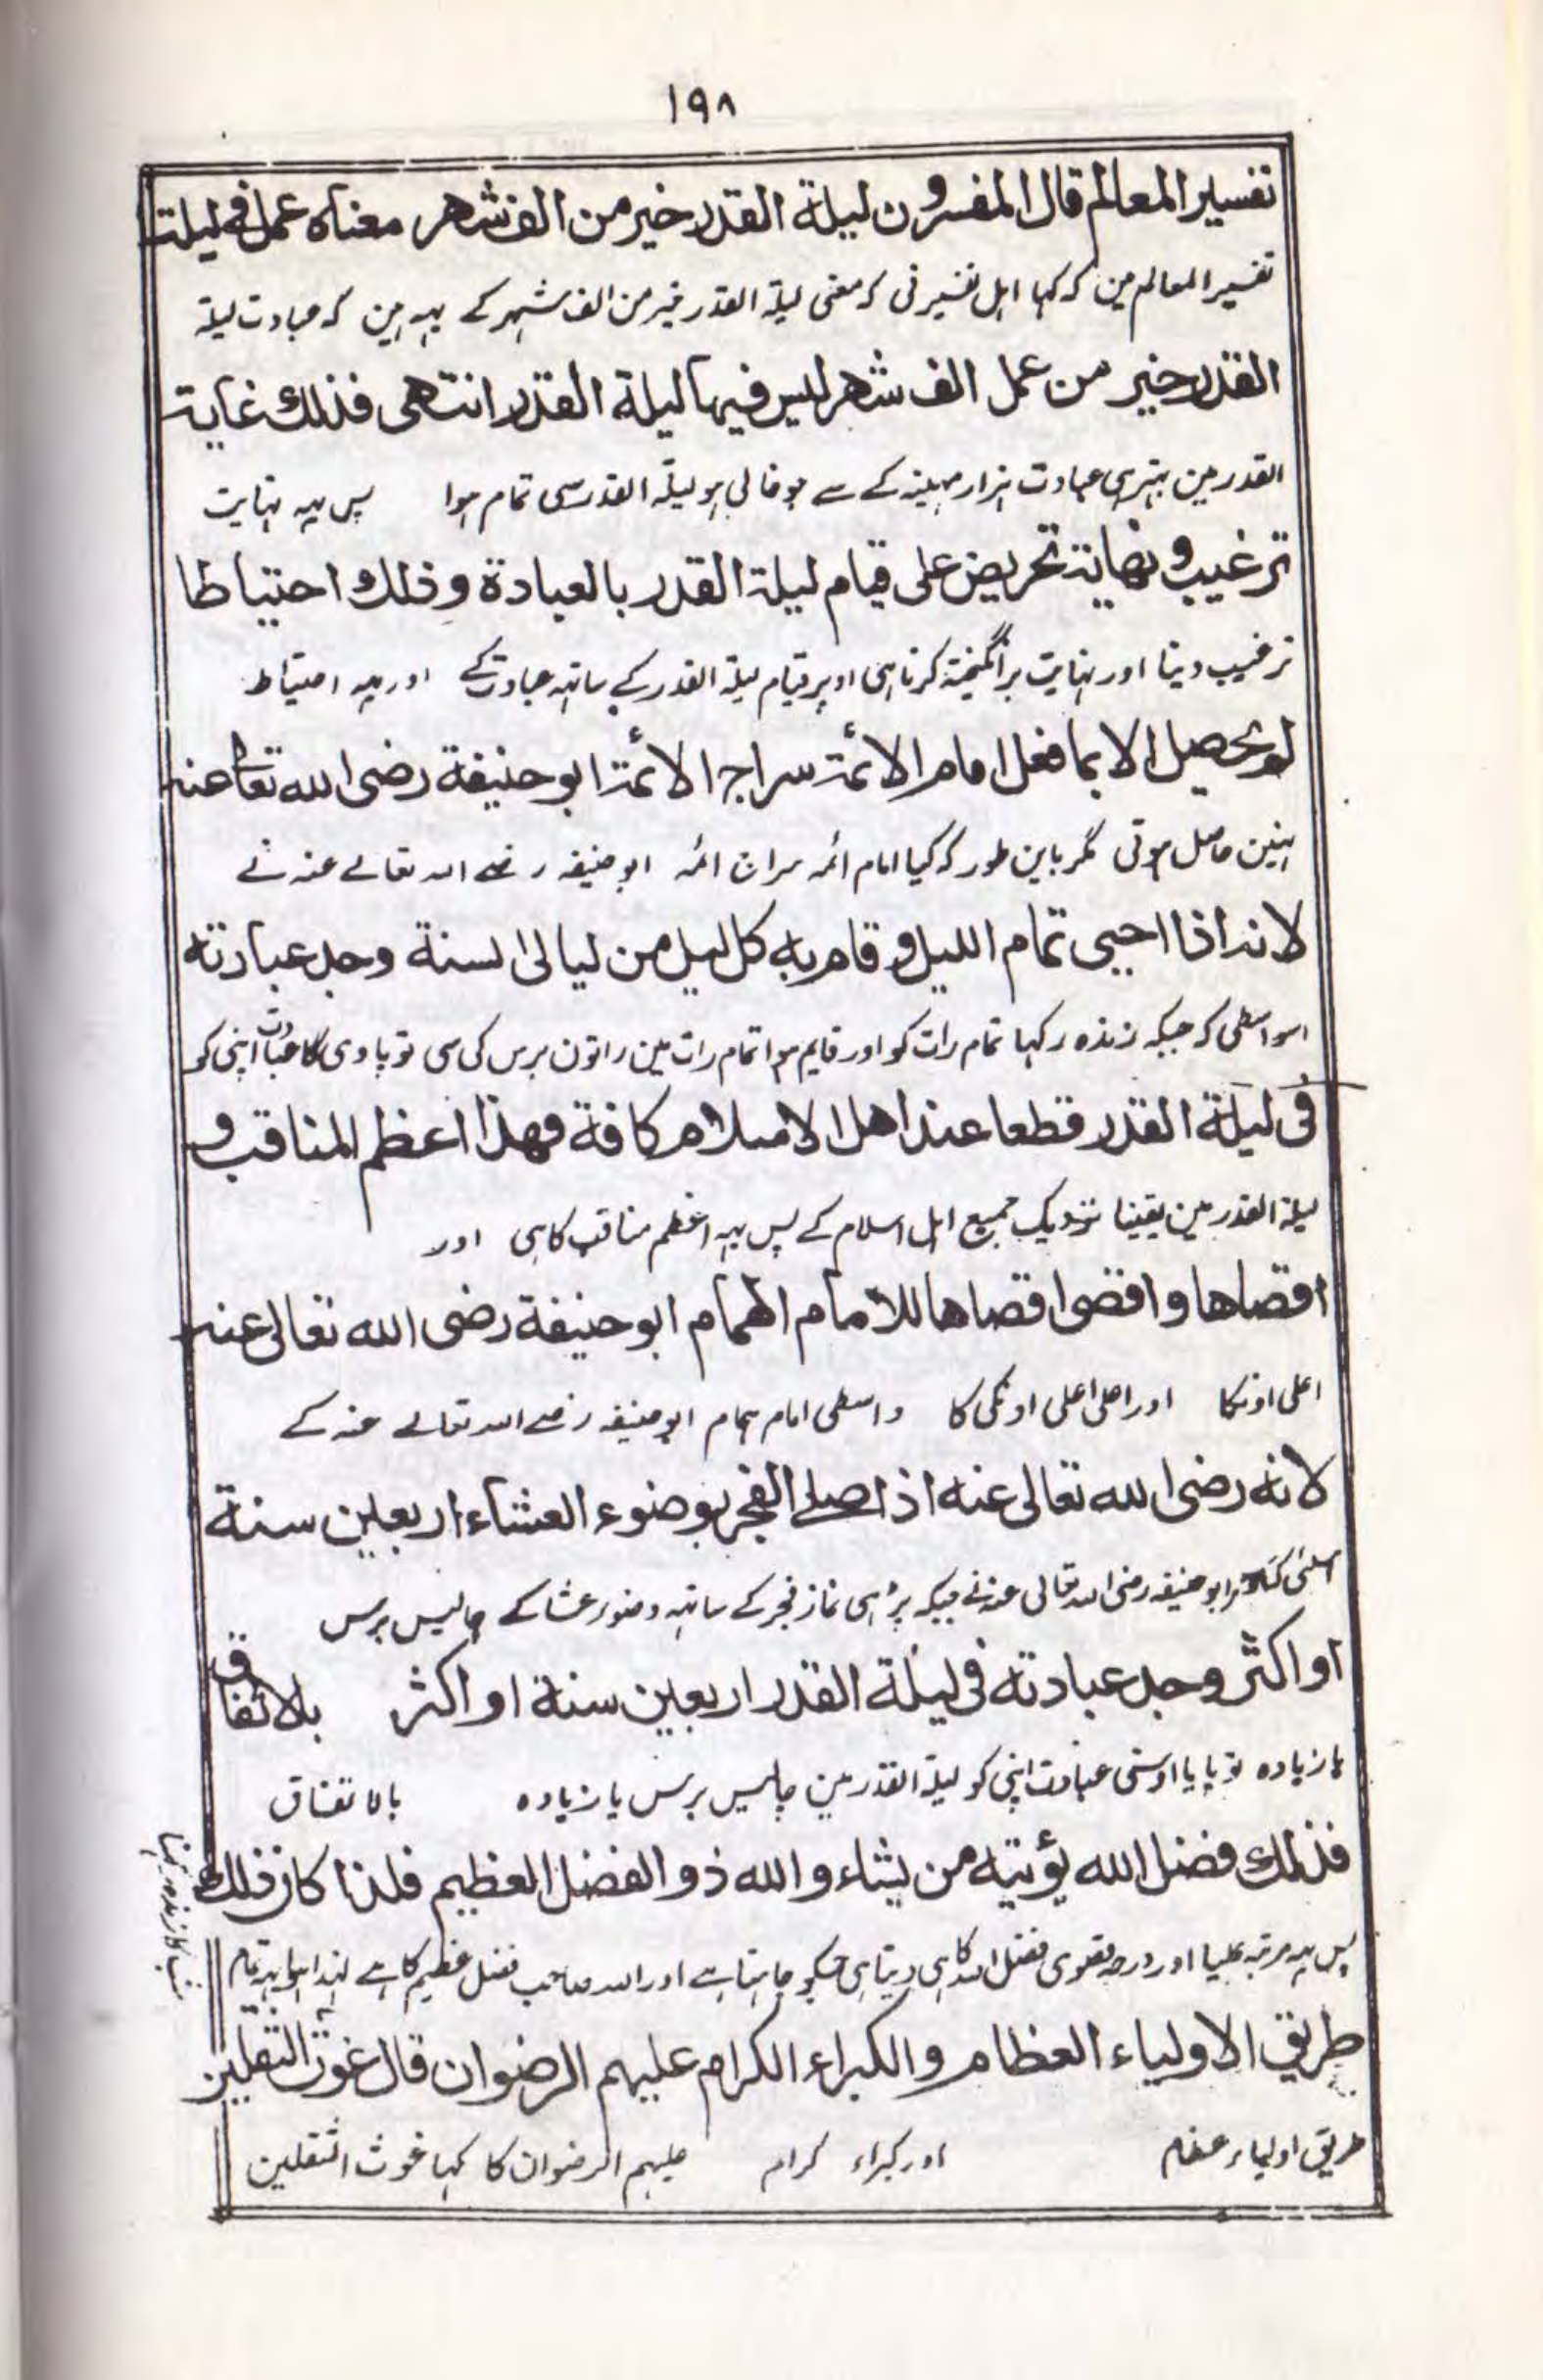 ١٩٨
تفسير المعالم قال المفسرون ليلة القدر خير من الف شهر معناه عمل فى ليلة
تفسیر المعالم مین کہ کہا اہل تفسیر نی کہ معنی لیلۃ القدر خیر من الف شہر کے یہہ ہین کہ عبادت لیلۃ
القدر خير من عمل الف شهر ليس فيها ليلة القدر انتهى فذلك غاية
القدر مین بہتر ہی عبادت ہزار مہینہ کے سے جو خالی ہو لیلۃ القدر سی تمام ہوا پس یہہ نہایت
ترغيب و نهاية تحريض على قيام ليلة القدر بالعبادة وذلك احتياطا
ترغیب دینا اور نہایت برانگیختہ کرنا ہی اوپر قیام لیلۃ القدر کے ساتہہ عبادت کے اور یہہ احتیاط
لم يحصل الا بما فعل امام الائمة سراج الائمة ابو حنيفة رضى الله تعالى عنه
نہین حاصل ہوتی مگر باین طور کہ کیا امام ائمہ سراج ائمہ ابو حنیفہ رضے اللہ تعالے عنہ نے
لانه اذا احيى تمام الليل و قام به كل ليل من ليالى السنة وجد عبادته
اسواسطی کہ جبکہ زندہ رکہا تمام رات کو اور قایم ہوا تمام رات مین راتون برس کی سی تو پاوی گا عبادت اپنی کو
فى ليلة القدر قطعا عند اهل الاسلام كافة فهذا اعظم المناقب و
لیلۃ القدر مین یقینا نزدیک جمیع اہل اسلام کے پس یہہ اعظم مناقب کا ہی اور
اقصاها و اقصى اقصاها للامام الهمام ابو حنيفة رضى الله تعالى عنه
اعلی اونکا اور اعلی اعلی اونکی کا واسطی امام ہمام ابو حنیفہ رضے اللہ تعالے عنہ کے
لانه رضى الله تعالى عنه اذا صلے الفجر بوضوء العشاء اربعين سنة
ابو حنیفہ رضی اللہ تعالی عنہ نے جبکہ پڑہی نماز فجر کے ساتہہ وضوء عشا کے چالیس برس
او اكثر وجد عبادته فى ليلة القدر اربعين سنة او اكثر بلا تفاق
یا زیادہ تو پایا اوسنی عبادت اپنی کو لیلۃ القدر مین چالیس برس یا زیادہ بالاتفاق
فذلك فضل الله يؤتيه من يشاء و الله ذو الفضل العظيم فلذا كان ذلك
پس یہہ مرتبہ علیا اور درجہ قصوی فضل اللہ کا ہی دیتا ہی جسکو چاہتا ہے اور اللہ صاحب فضل عظیم کا ہے لہذا ہوا یہہ تمام
شب کا زندہ رکہنا
طريق الاولياء العظام و الكبراء الكرام عليهم الرضوان قال غوث الثقلين
طریق اولیاء عظام اور کبراء کرام علیہم الرضوان کا کہا غوث الثقلین